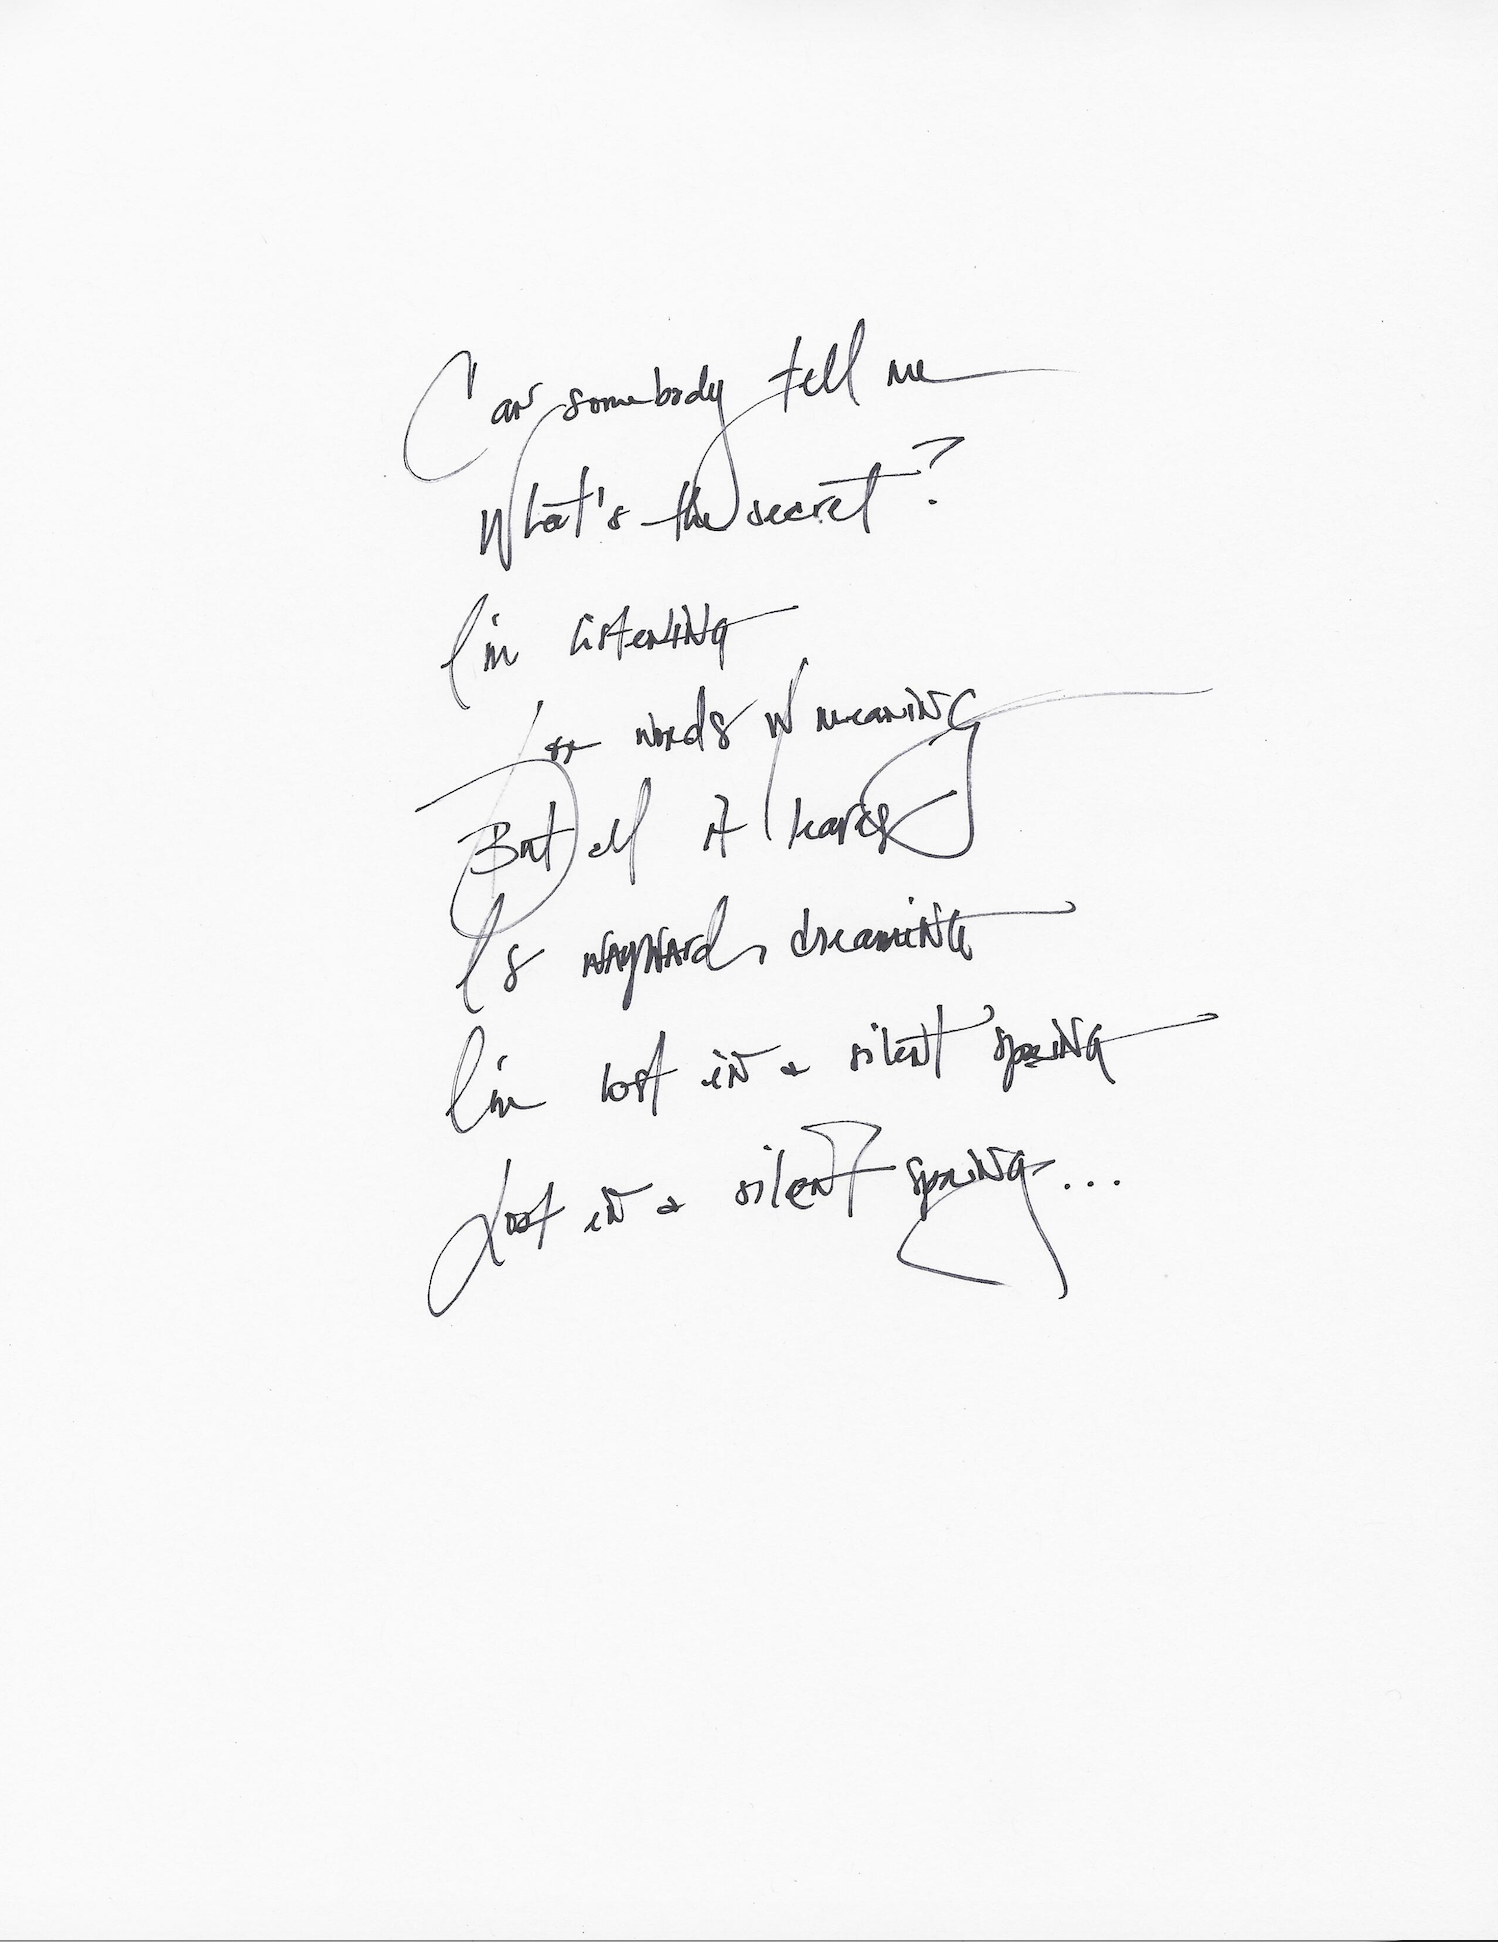 Can somebody tell me
What's the secret?
I'm listening
For words w/ meaning
But all it hears
Is wayward dreaming
I'm lost in a silent spring
Lost in a silent spring...